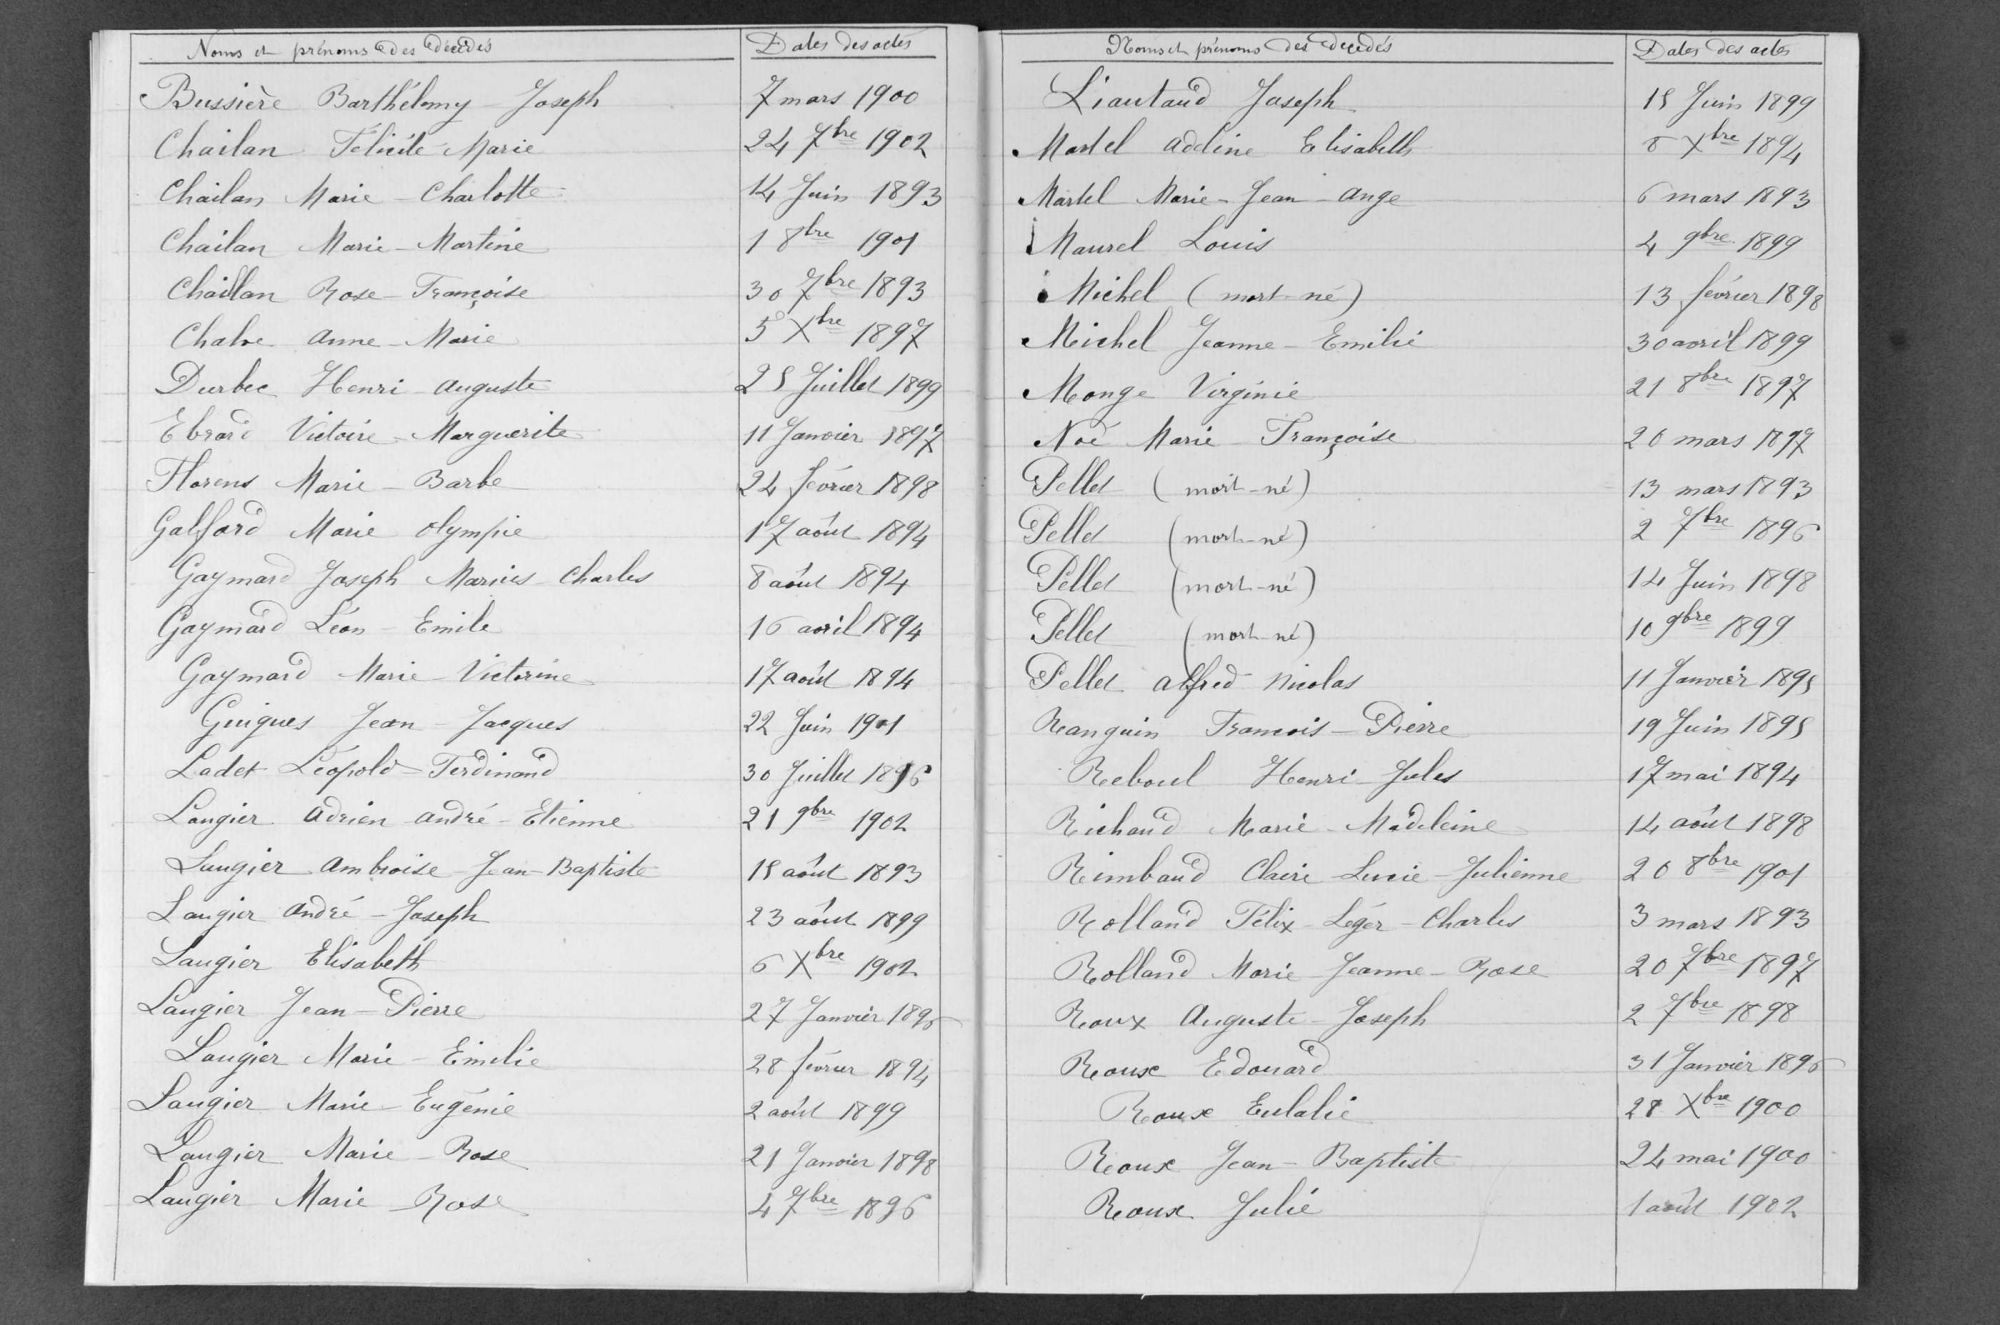 Noms et prénoms des décédés Dates des actes
Bussière Barthélemy - Joseph 7 mars 1900
Chailan Félicité Marie 24 7bre 1902
Chailan Marie - Charlotte 14 Juin 1893
Chailan Marie - Martine 1 8bre 1901
Chaillan Rose - Françoise 30 7bre 1893
Chalve Anne - Marie 5 Xbre 1897
Durbec Henri - Auguste 25 Juillet 1899
Ebrard Victoire - Marguerite 11 Janvier 1897
Florens Marie - Barbe 24 février 1898
Galfard Marie Olympie 17 août 1894
Gaymard Joseph Marius - Charles 8 août 1894
Gaymard Léon - Emile 16 avril 1894
Gaymard Marie - Victorine 17 août 1894
Guigues Jean - Jacques 22 Juin 1901
Ladet Léopold - Ferdinand 30 Juillet 1896
Laugier Adrien André - Etienne 21 9bre 1902
Laugier Ambroise - Jean - Baptiste 15 août 1893
Laugier André - Joseph 23 août 1899
Laugier Elisabeth 6 Xbre 1902
Laugier Jean - Pierre 27 Janvier 1896
Laugier Marie - Emilie 28 février 1894
Laugier Marie - Eugénie 2 août 1899
Laugier Marie - Rose 21 Janvier 1898
Laugier Marie Rose 4 7bre 1896
Noms et prénoms des décédés Dates des actes
Liautaud Joseph 15 Juin 1899
Martel Adeline Elisabeth 8 Xbre 1894
Martel Marie - Jean - Ange 6 mars 1893
Maurel Louis 4 9bre 1899
Michel (mort-né) 13 février 1898
Michel Jeanne - Emilie 30 avril 1899
Monge Virginie 21 8bre 1897
Noé Marie - Françoise 20 mars 1897
Pellet (mort-né) 13 mars 1893
Pellet (mort-né) 2 7bre 1896
Pellet (mort-né) 14 Juin 1898
Pellet (mort-né) 10 9bre 1899
Pellet Alfred Nicolas 11 Janvier 1895
Ranguin François - Pierre 19 Juin 1895
Reboul Henri - Jules 17 mai 1894
Richaud Marie - Madeleine 14 août 1898
Rimbaud Claire - Lucie - Julienne 20 8bre 1901
Rolland Félix - Léger - Charles 3 mars 1893
Rolland Marie - Jeanne - Rose 20 7bre 1897
Roux Auguste - Joseph 2 7bre 1898
Roux Edouard 31 Janvier 1896
Roux Eulalie 28 Xbre 1900
Roux Jean - Baptiste 24 mai 1900
Roux Julie 1 août 1902